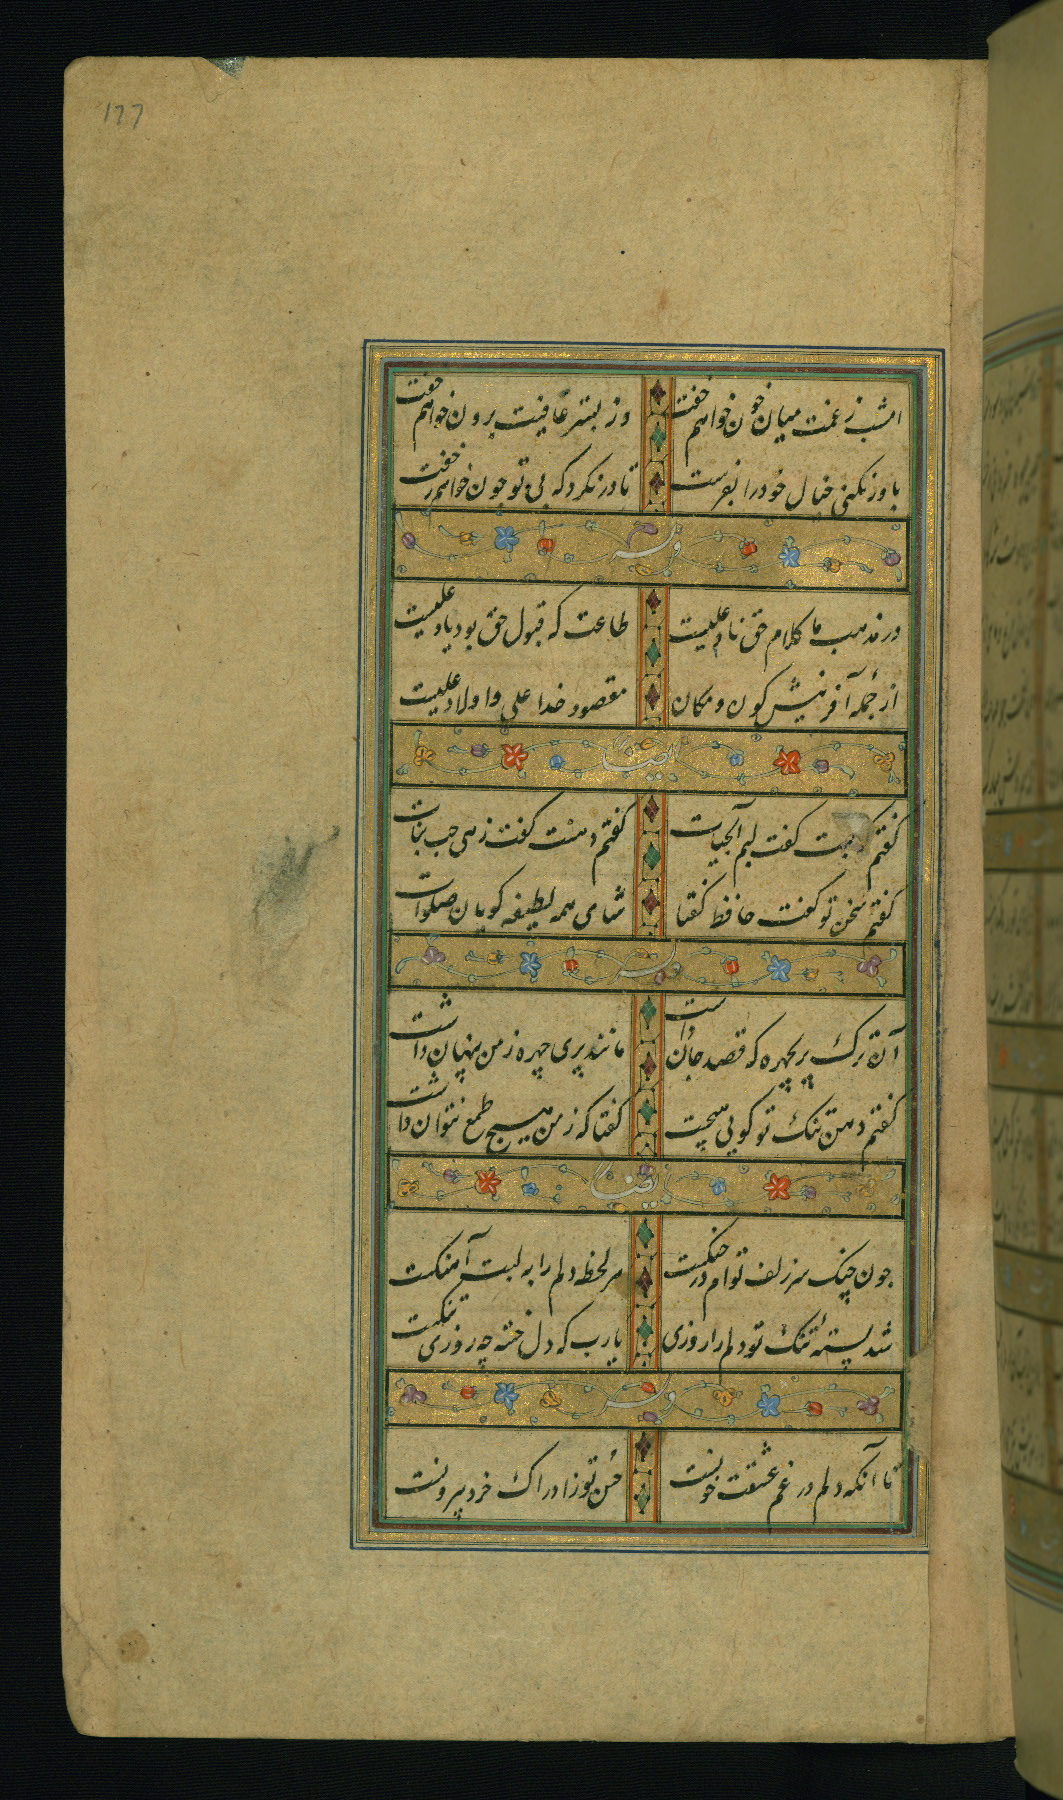 177
امشب ز غمت میان خون خواهم خفت
وز بستر عافیت برون خواهم خفت
باور نکنی خیال خود را بفرست
تا در نگرد که بی تو چون خواهم خفت
وله
در مذهب ما کلام حق ناد علیست
طاعت که قبول حق بود یاد علیست
از جمله آفرینش کون و مکان
مقصود خدا علی و اولاد علیست
ایضا
گفتم که لبت گفت لبم آب حیات
گفتم دهنت گفت زهی حب نبات
گفتم سخن تو گفت حافظ گفتا
شادی همه لطیفه گویان صلوات
وله
آن ترک پریچهره که قصد جان داشت
مانند پری چهره ز من پنهان داشت
گفتم دهن تنک تو گویی هیچست
گفتا که ز من هیچ طمع نتوان داشت
ایضا
چون چنک سر زلف توام در چنکست
هر لحظه دلم را به لبت آهنکست
شد پسته تنک تو دلم را روزی
یارب که دل خسته چه روزی تنکست
وله
تا آنکه دلم در غم عشقت خونست
حسن تو ز ادراک خرد بیرونست